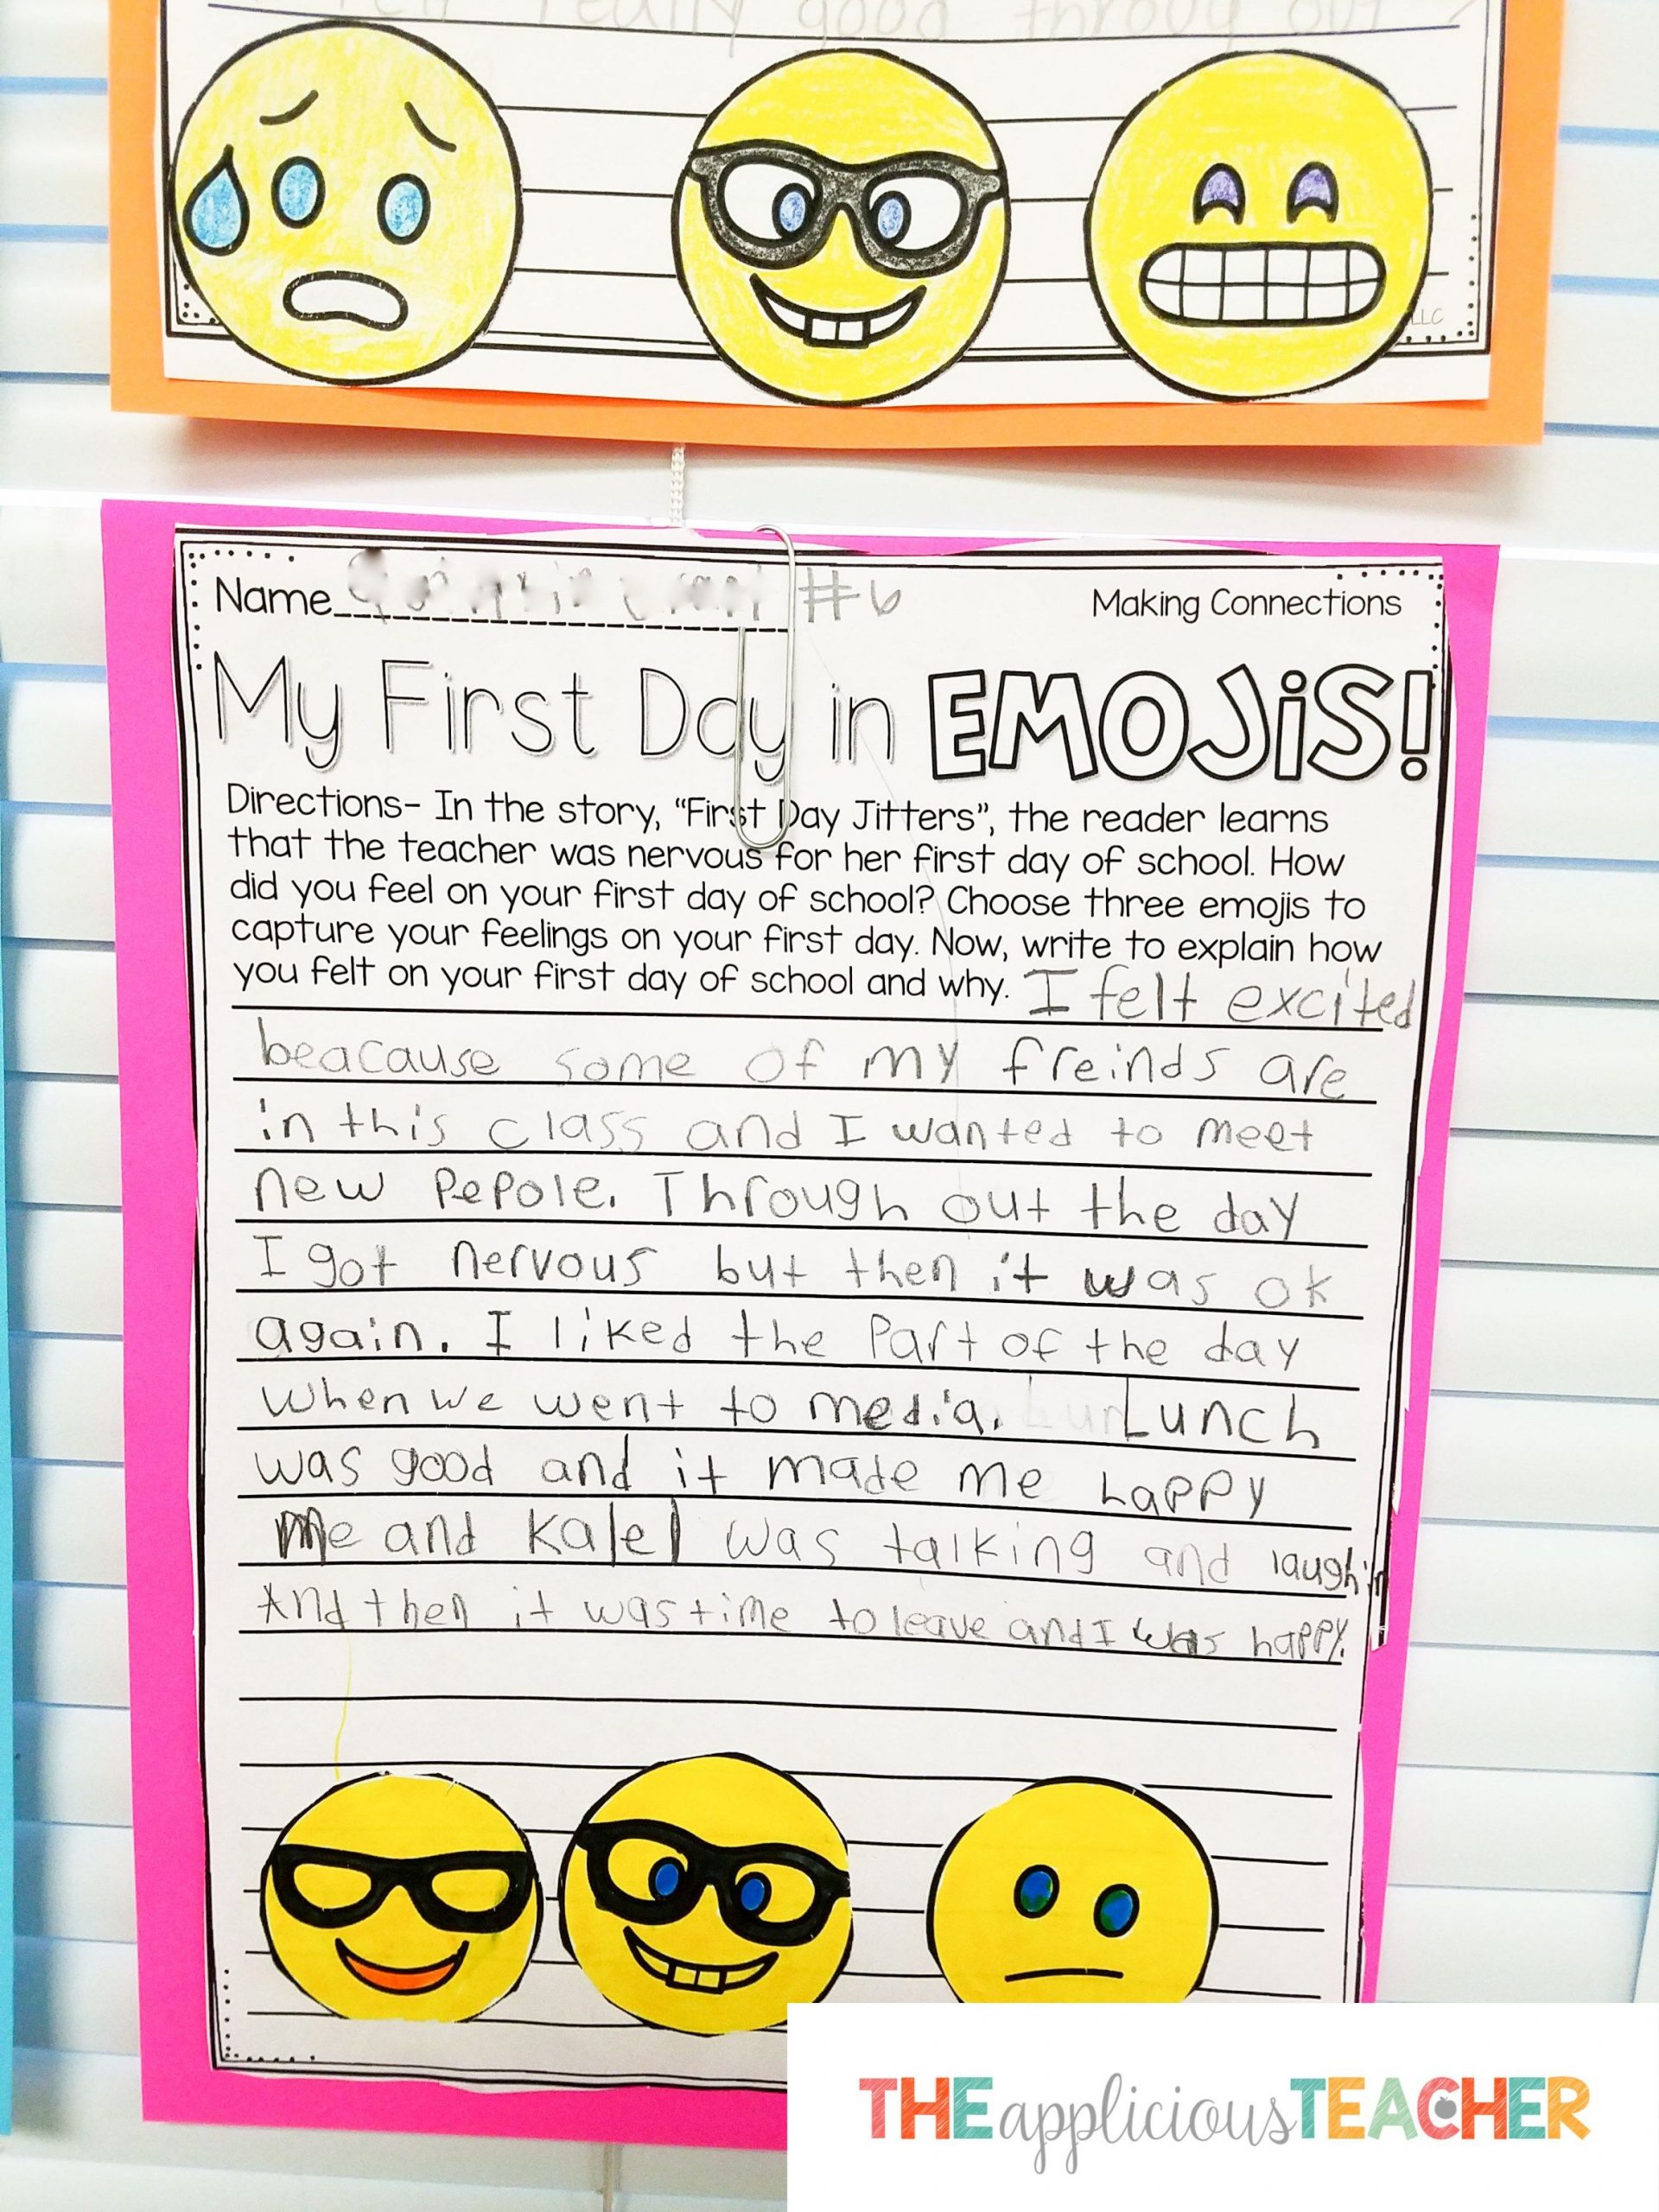 really good through out
LLC
Name #6
Making Connections
My First Day in EMOJiS!
Directions- In the story, “First Day Jitters”, the reader learns
that the teacher was nervous for her first day of school. How
did you feel on your first day of school? Choose three emojis to
capture your feelings on your first day. Now, write to explain how
you felt on your first day of school and why. I felt excited
beacause some of my freinds are
in this class and I wanted to meet
new Pepole. Through out the day
I got nervous but then it was ok
again. I liked the Part of the day
when we went to media. Lunch
was good and it made me happy
Me and Kalel was talking and laughin
And then it was time to leave and I was happy.
THE appliciousTEACHER